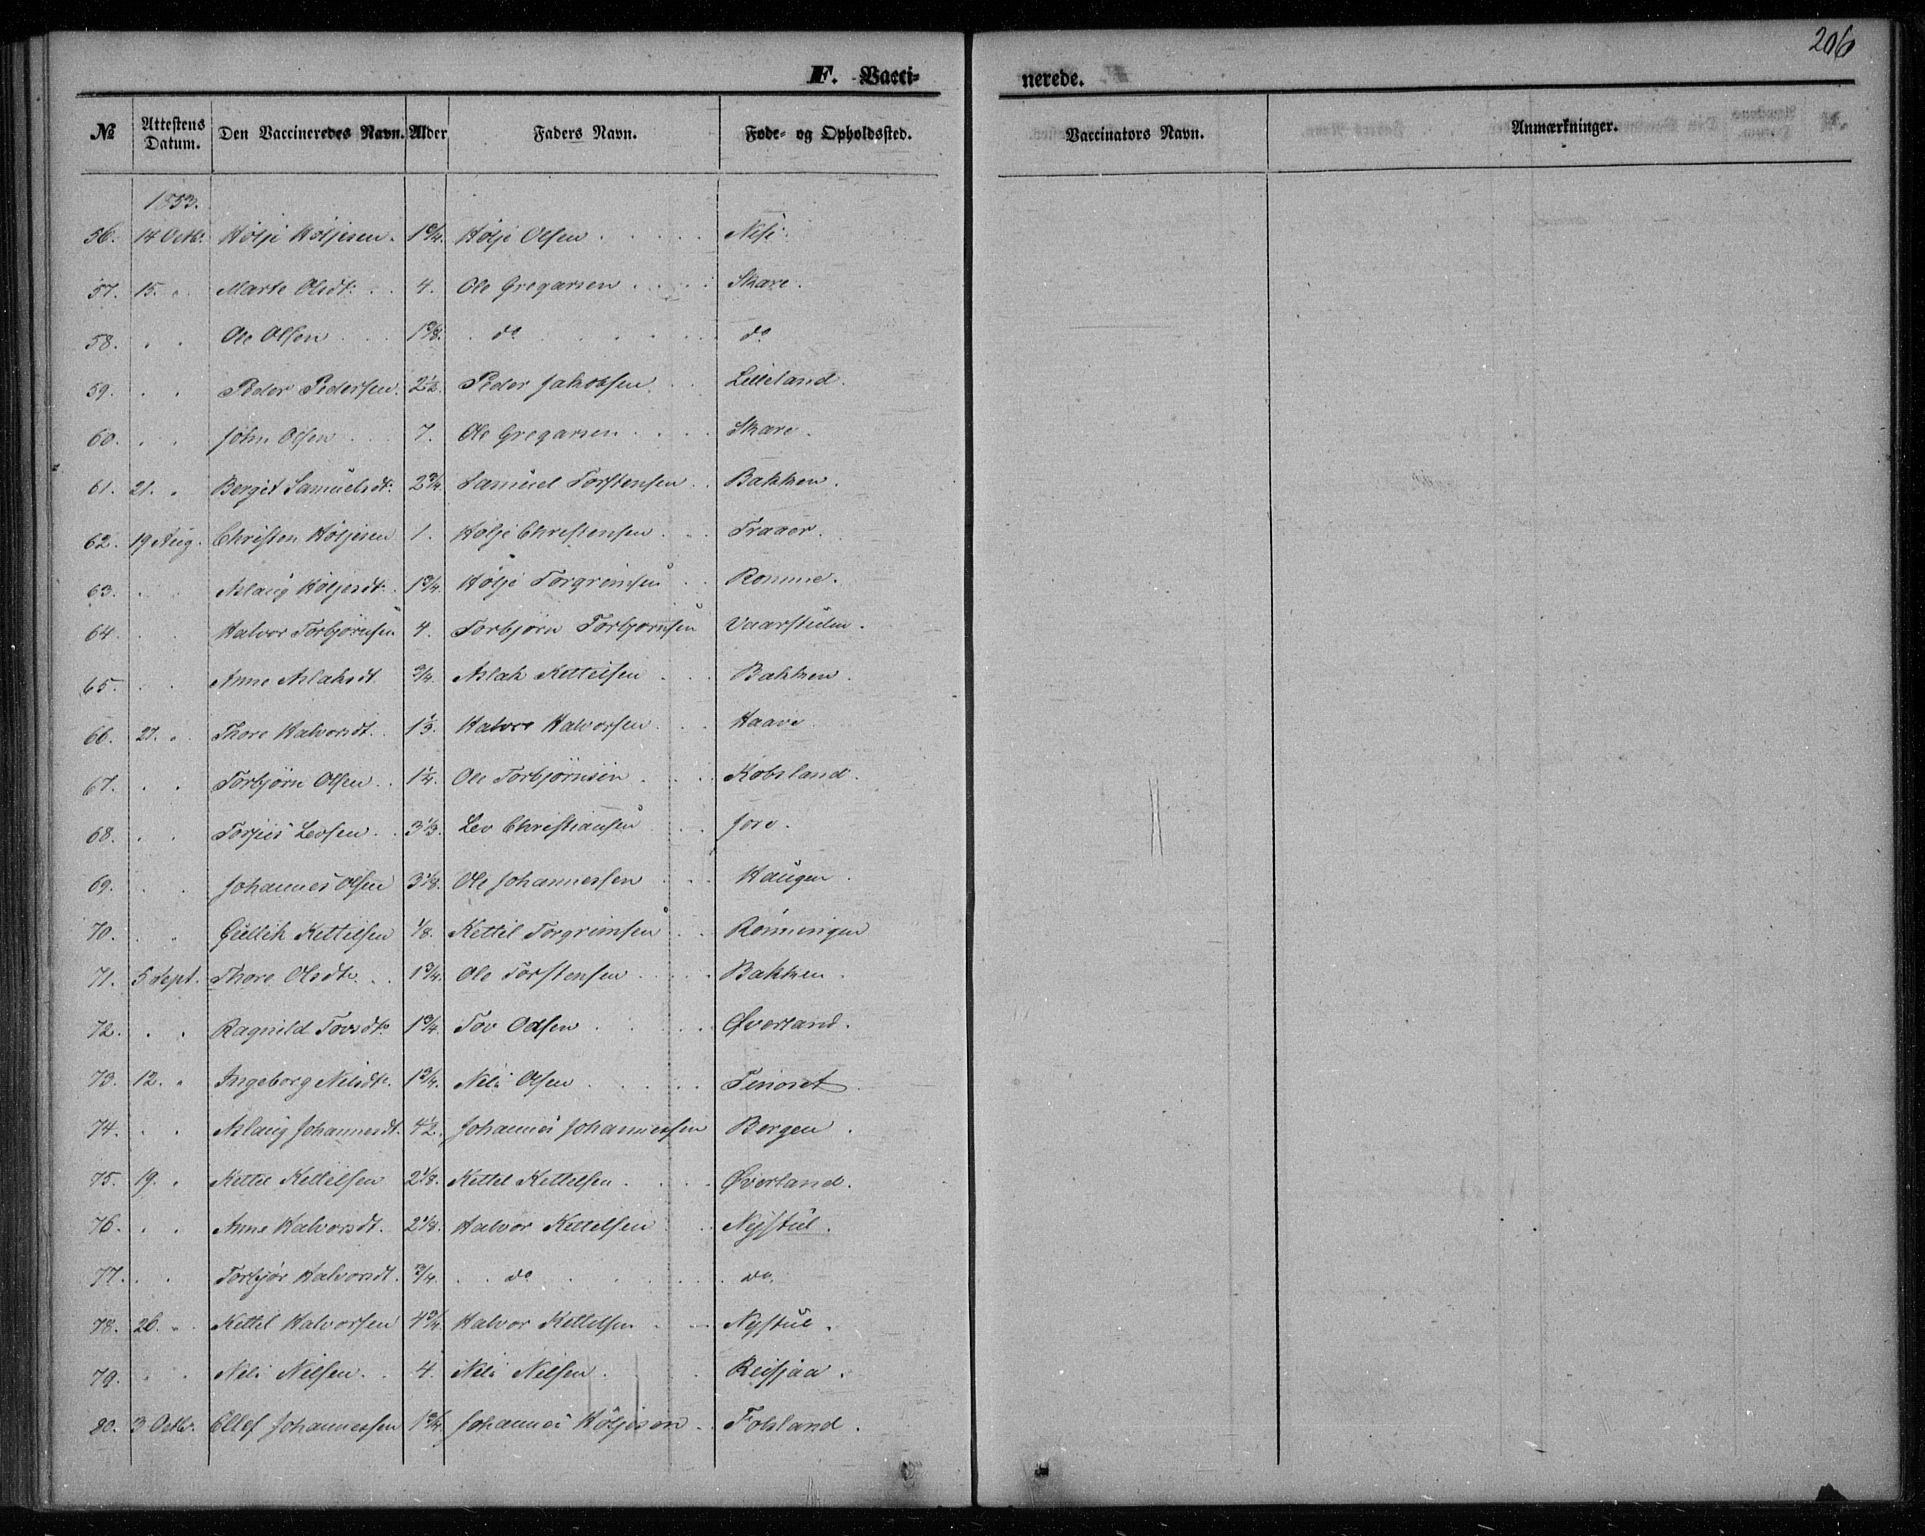 206
F. Vacci-
nerede.
No
Attestens Datum.
Den Vaccineredes Navn.
Alder
Faders Navn.
Føde- og Opholdssted.
Vaccinators Navn.
Anmærkninger.
1853.
56. 14 Octb. Høljе Høljesen. 1 3/4. Hølje Olsen Nisi.
57. 15. " Marte Olsdt. 4. Ole Gregarsen Skare.
58. " " Ole Olsen 1 3/8. do do
59. " " Peder Pedersen. 2 1/2. Peder Jakobsen Lilleland.
60. " " John Olsen 7. Ole Gregarsen Skare.
61. 21. " Bergit Samuelsdt. 2 3/4. Samuel Torstensen Bakken.
62. 19 Aug. Christen Høljesen 1. Holje Christensen Traaer.
63. " " Aslaug Høljesdt. 1 3/4. Hølje Torgrimsen Romme.
64. " " Halvor Torbjørnsen 4. Torbjørn Torbjørnsen Vaarstulen.
65. " " Anne Aslaksdt. 3/4. Aslak Kettilsen Bakken.
66. 27. " Thore Halvorsdt. 1 1/3. Halvor Halvorsen Haave
67. " " Torbjørn Olsen 1 1/4. Ole Torbjørnsen Kobsland.
68. " " Torjus Levsen 3 1/3. Lev Christiansen Jore.
69. " " Johannes Olsen 3 1/8. Ole Johannessen Haugen
70. " " Gullik Kettilsen 1/8. Kettil Torgrimsen Rønningen
71. 5 Sept. Thore Olsdt. 1 3/4. Ole Torstensen Bakken.
72. " " Ragnild Tovsdt. 1 3/4. Tov Odsen Øverland.
73. 12. " Ingeborg Nilsdt. 1 3/4. Nils Olsen Tinoset
74. " " Aslaug Johannesdt. 4 1/2. Johannes Johannessen Bergen
75. 19. " Kettil Kettilsen 2 1/8. Kettil Kettilsen Øverland.
76. " " Anne Halvorsdt. 2 1/3. Halvor Kettelsen Nystul.
77. " " Torbjør Halvorsdt. 3/4. do do.
78. 26. " Kettil Halvorsen 4 3/4. Halvor Kettelsen Nystul.
79. " " Nils Nilsen 4. Nils Nilsen Reisjaa.
80. 3 Octb. Ellef Johannessen 1 3/4. Johannes Høljesen Folsland.